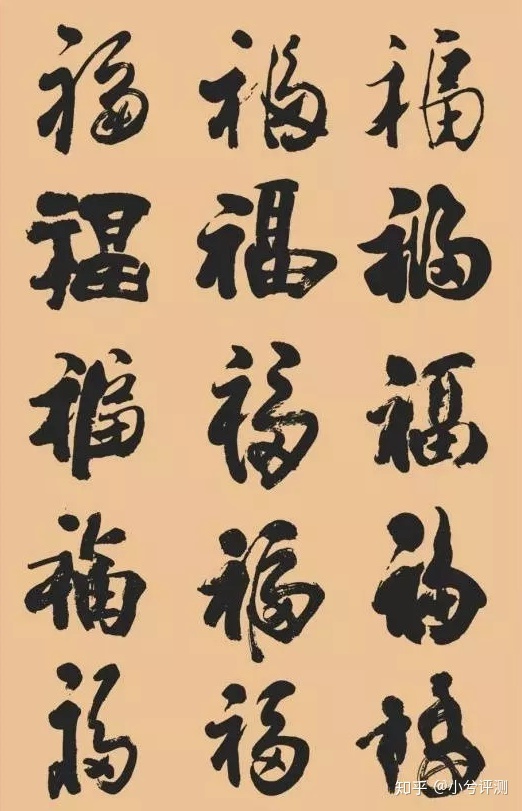 福 福 福
福 福 福
福 福 福
福 福 福
福 福 福
知乎 @小兮评测